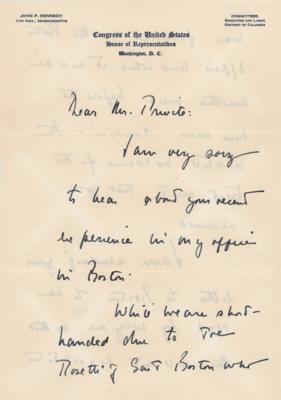 JOHN F. KENNEDY
11TH DIST., MASSACHUSETTS
COMMITTEES:
EDUCATION AND LABOR
DISTRICT OF COLUMBIA
Congress of the United States
House of Representatives
Washington, D. C.
Dear Mr. Privito:
I am very sorry
to hear about your recent
experience in my office
in Boston.
While we are short-
handed due to Joe
Rosetti of East Boston who